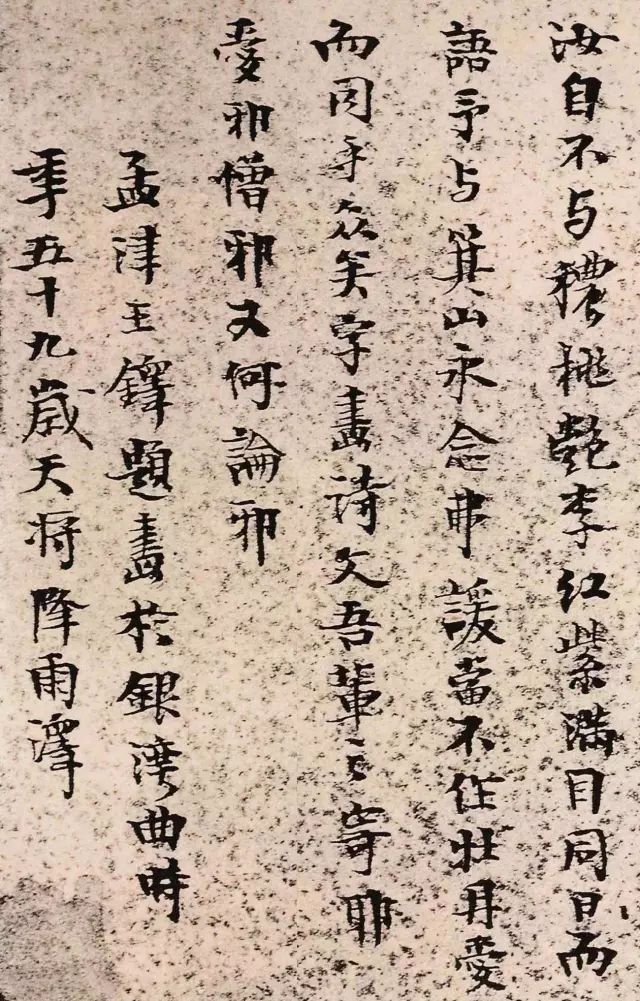 汝自不与穠桃艷李紅紫滿目同日而
語予与箕山永念弗諼當不作牡丹愛
而因乎衆矣字畫詩文吾輩之寄耶
愛邪憎邪又何論邪
孟津王鐸題畫於銀灣曲時
年五十九歲天將降雨澤